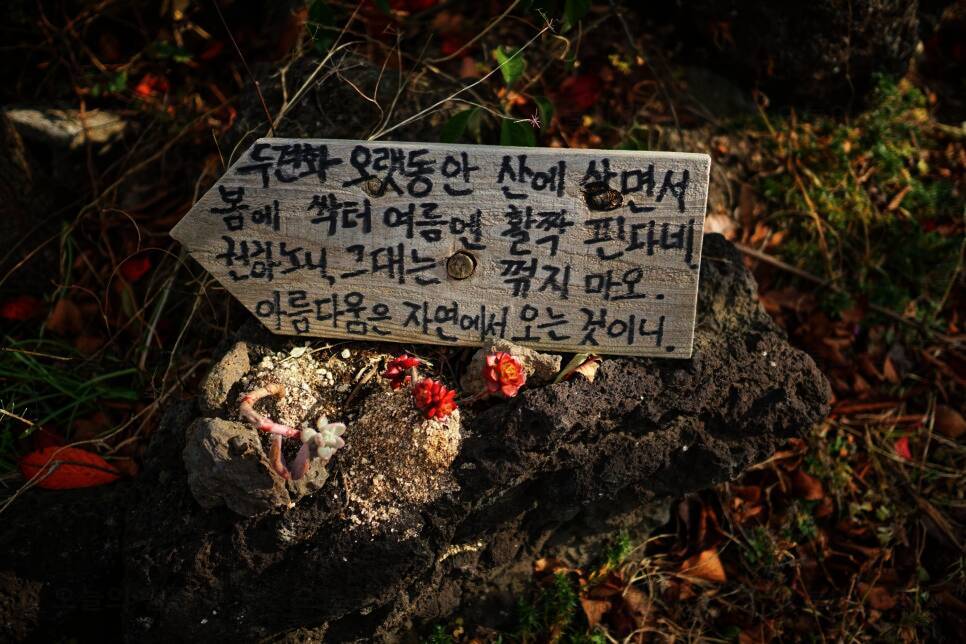 두견화 오랫동안 산에 살면서
봄에 싹터 여름엔 활짝 핀다네
권하노니, 그대는 꺾지 마오.
아름다움은 자연에서 오는 것이니.